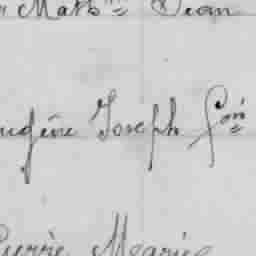 Math= Jean
ugène Joseph fçois
Pierre Marie